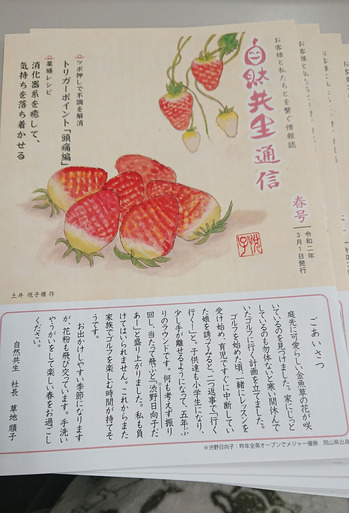 お客様と私たちとを繋ぐ情報誌
自然共生通信
春号
令和二年
3月1日発行
ツボ押しで不調を解消
トリガーポイント「頭痛編」
薬膳レシピ
消化器系を癒して、
気持ちを落ち着かせる
土井 悦子様 作
ごあいさつ
庭先に可愛らしい金魚草の花が咲
いているのを見つけました。家にじっと
しているのも勿体ないと寒い間休んで
いたゴルフに行く計画を立てました。
ゴルフを始めた頃、一緒にレッスンを
受け始め、育児ですぐに中断してい
た娘を誘ってみると、二つ返事で「行く
行く～!」と。子供達も小学生になり、
少し手が離せるようになって、五年ぶ
りのラウンドです。何も考えず振り
回し、当たって飛ぶと「渋野日向子だ
あ～!」と盛り上がりました。私も負
けてはいられません。これからまた
家族でゴルフを楽しむ時間が持てそ
うです。
お出かけしやすい季節になります
が、花粉も飛び交っています。手洗い
やうがいをして楽しい春をお過ごし
ください。
自然共生 社長 草地 順子
※渋野日向子：昨年全英オープンでメジャー優勝 岡山県出身